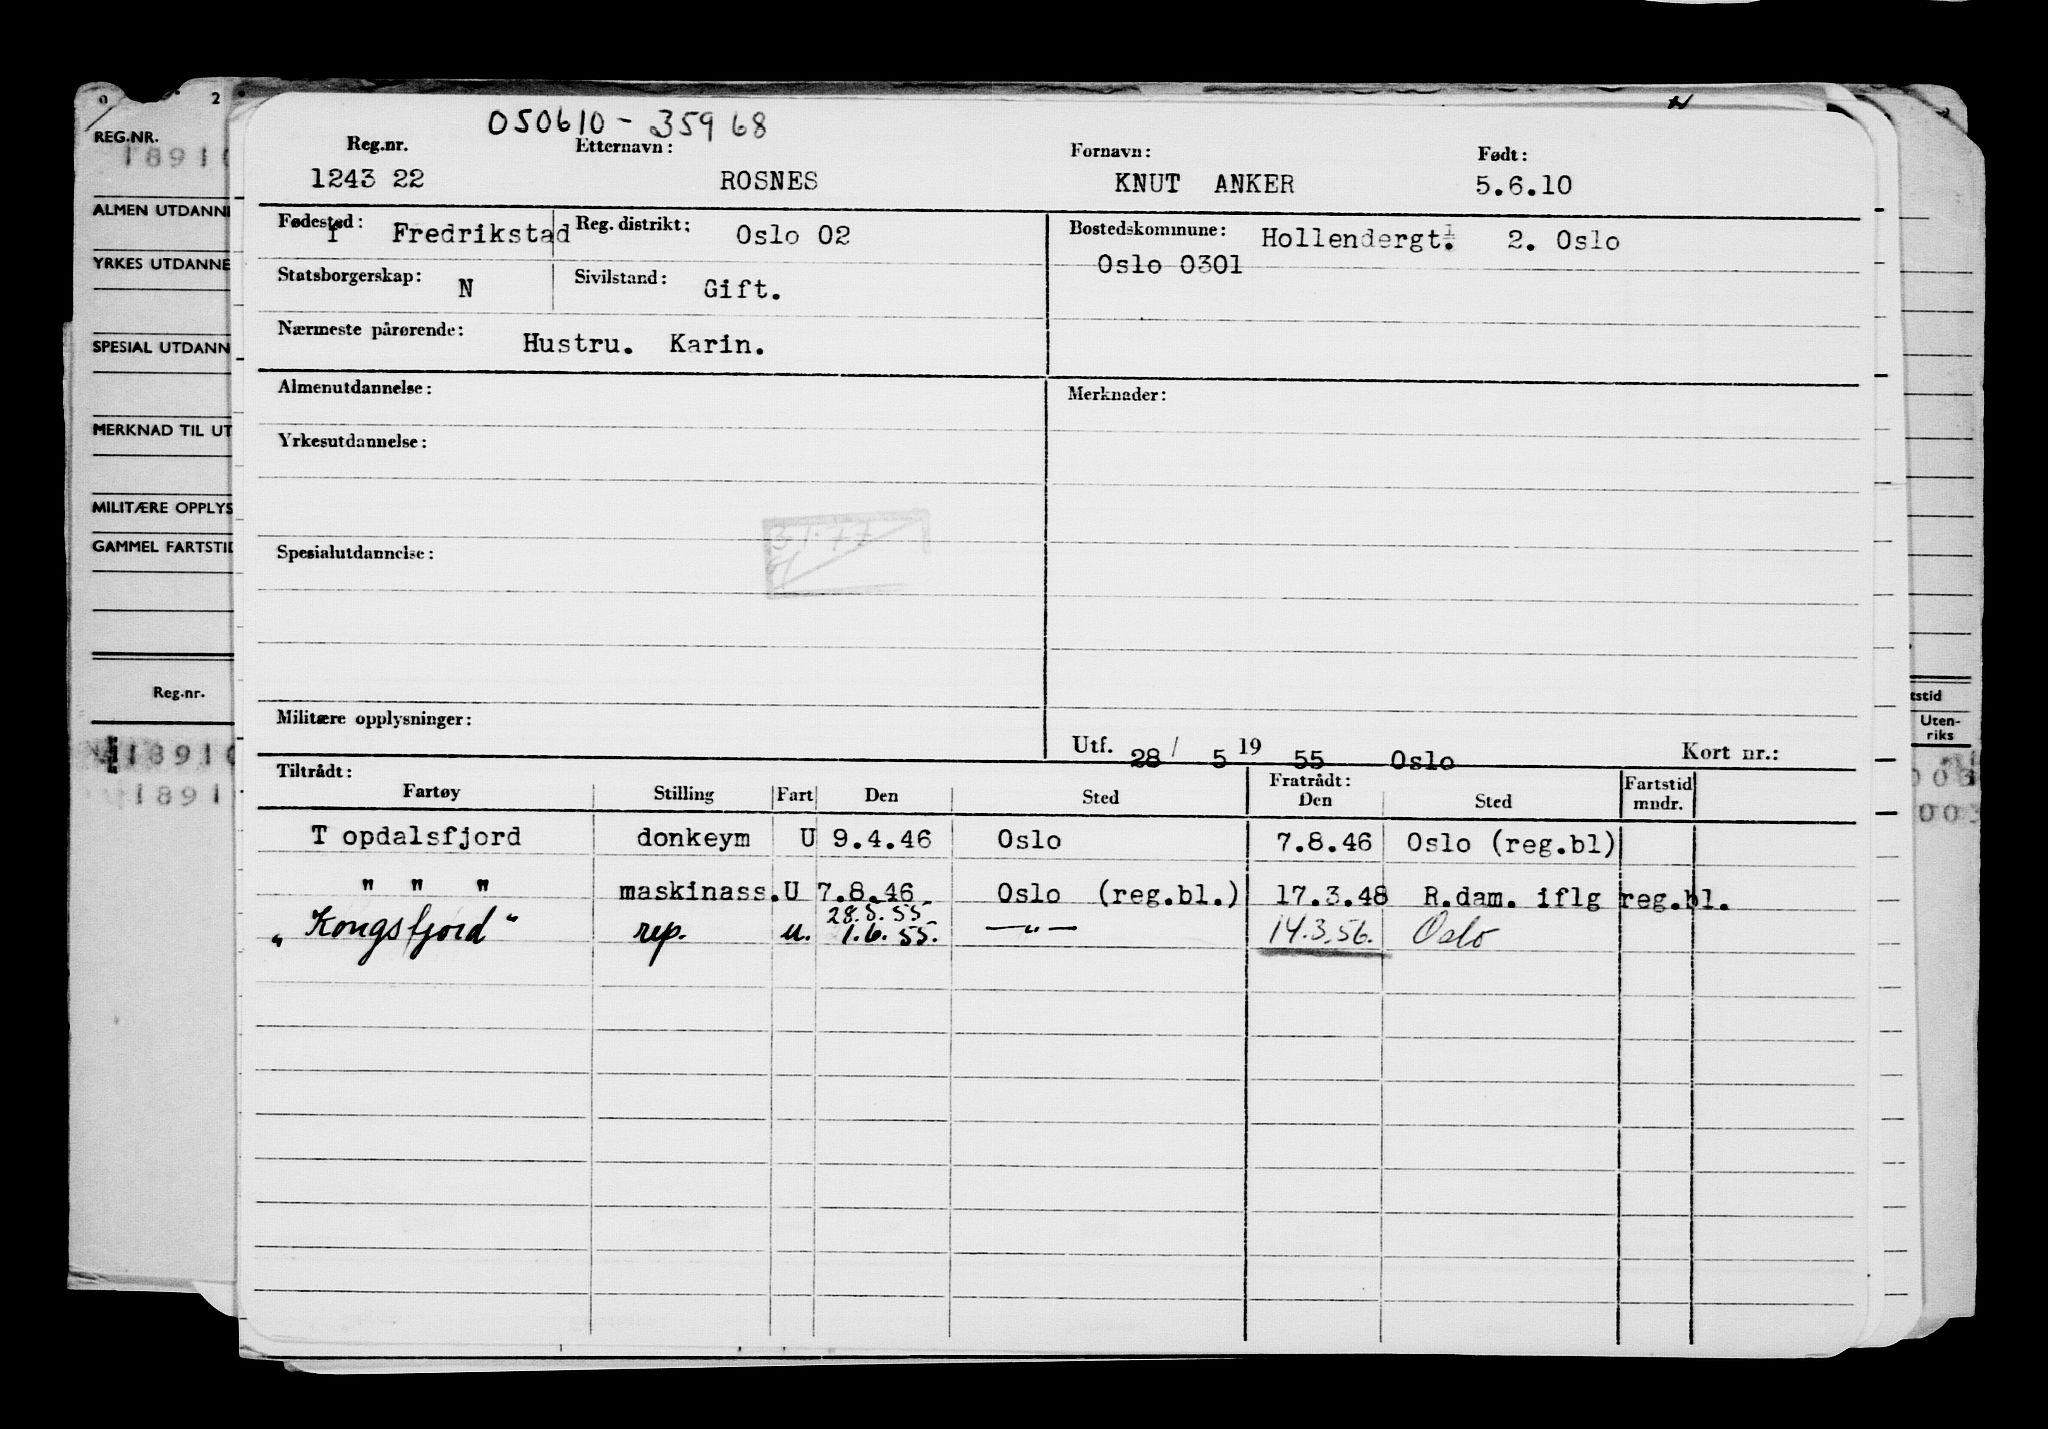 050610-35968
Reg.nr. Etternavn: Fornavn: Født:
1243 22 ROSNES KNUT ANKER 5.6.10
Fødested: Fredrikstad Reg. distrikt: Oslo 02 Bostedskommune: Hollendergt. 2. Oslo
Oslo 0301
Statsborgerskap: N Sivilstand: Gift.
Nærmeste pårørende: Hustru. Karin.
Almenutdannelse: Merknader:
Yrkesutdannelse:
Spesialutdannelse:
Militære opplysninger:
Utf. 28/ 5 19 55 Oslo Kort nr.:
Tiltrådt: Fratrådt: Fartstid
Fartøy Stilling Fart Den Sted Den Sted mndr.
T opdalsfjord donkeym U 9.4.46 Oslo 7.8.46 Oslo (reg.bl)
" " " maskinass. U 7.8.46 Oslo (reg.bl.) 17.3.48 R.dam. iflg reg.bl.
28.5.55
"Kongsfjord" rep. u. 1.6.55. —"— 14.3.56. Oslo
2
REG.NR.
18910
ALMEN UTDANN
YRKES UTDANNE
SPESIAL UTDANN
MERKNAD TIL UT
MILITÆRE OPPLYS
GAMMEL FARTSTID
Reg.nr.
18910
1891
tstid
Uten-
riks
003
003